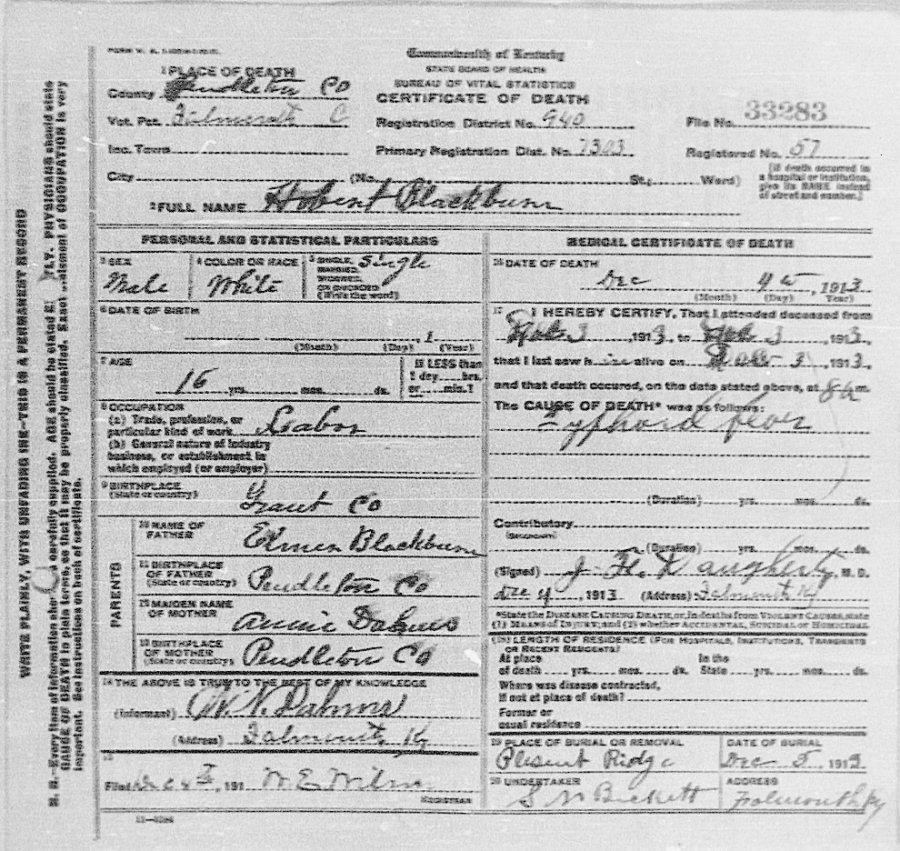 Commonwealth of Kentucky
STATE BOARD OF HEALTH
BUREAU OF VITAL STATISTICS
CERTIFICATE OF DEATH
1 PLACE OF DEATH
County Pendleton Co
Vot. Pct. Falmouth C
Registration District No. 940
File No. 33283
Inc. Town
Primary Registration Dist. No. 7303
Registered No. 57
City (No. St.; Ward)
[If death occurred in
a hospital or institution,
give its NAME instead
of street and number.]
2 FULL NAME Hobert Blackburn
PERSONAL AND STATISTICAL PARTICULARS
3 SEX
Male
4 COLOR OR RACE
White
5 SINGLE,
MARRIED,
WIDOWED,
OR DIVORCED
(Write the word)
Single
6 DATE OF BIRTH
(Month) (Day) (Year)
7 AGE
16 yrs. mos. ds.
If LESS than
1 day hrs.
or min.?
8 OCCUPATION
(a) Trade, profession, or
particular kind of work Labor
(b) General nature of industry
business, or establishment in
which employed (or employer)
9 BIRTHPLACE
(State or country)
Grant Co
PARENTS
10 NAME OF
FATHER
Elmer Blackburn
11 BIRTHPLACE
OF FATHER
(State or country)
Pendleton Co
12 MAIDEN NAME
OF MOTHER
Annie
13 BIRTHPLACE
OF MOTHER
(State or country)
Pendleton Co
14 THE ABOVE IS TRUE TO THE BEST OF MY KNOWLEDGE
(Informant)
(Address) Falmouth Ky
15
Filed Dec 191 W. E. Wilson
REGISTRAR
11-4284
MEDICAL CERTIFICATE OF DEATH
16 DATE OF DEATH
Dec 1913
(Month) (Day) (Year)
17 I HEREBY CERTIFY, That I attended deceased from
3, 1913, to 3, 1913,
that I last saw him alive on 3, 1913,
and that death occured, on the date stated above, at 8 a m.
The CAUSE OF DEATH* was as follows:
Typhoid fever
(Duration) yrs. mos. ds.
Contributory
(Secondary)
(Duration) yrs. mos. ds.
(Signed) Daugherty, M. D.
Dec 4, 1913 (Address) Falmouth Ky
*State the DISEASE CAUSING DEATH, or, in deaths from VIOLENT CAUSES, state
(1) MEANS OF INJURY; and (2) whether ACCIDENTAL, SUICIDAL or HOMICIDAL
18 LENGTH OF RESIDENCE (FOR HOSPITALS, INSTITUTIONS, TRANSIENTS
OR RECENT RESIDENTS)
At place
of death yrs. mos. ds.
In the
State yrs. mos. ds.
Where was disease contracted,
if not at place of death?
Former or
usual residence
19 PLACE OF BURIAL OR REMOVAL
Plesent Ridge
DATE OF BURIAL
Dec 5 1913
20 UNDERTAKER
Beckett
ADDRESS
Falmouth Ky
WRITE PLAINLY, WITH UNFADING INK—THIS IS A PERMANENT RECORD
N. B.—Every item of information carefully supplied. AGE should be stated PHYSICIANS should state
CAUSE OF DEATH in plain terms, so that it may be properly classified. Exact statement of OCCUPATION is very
important. See instructions on back of certificate.